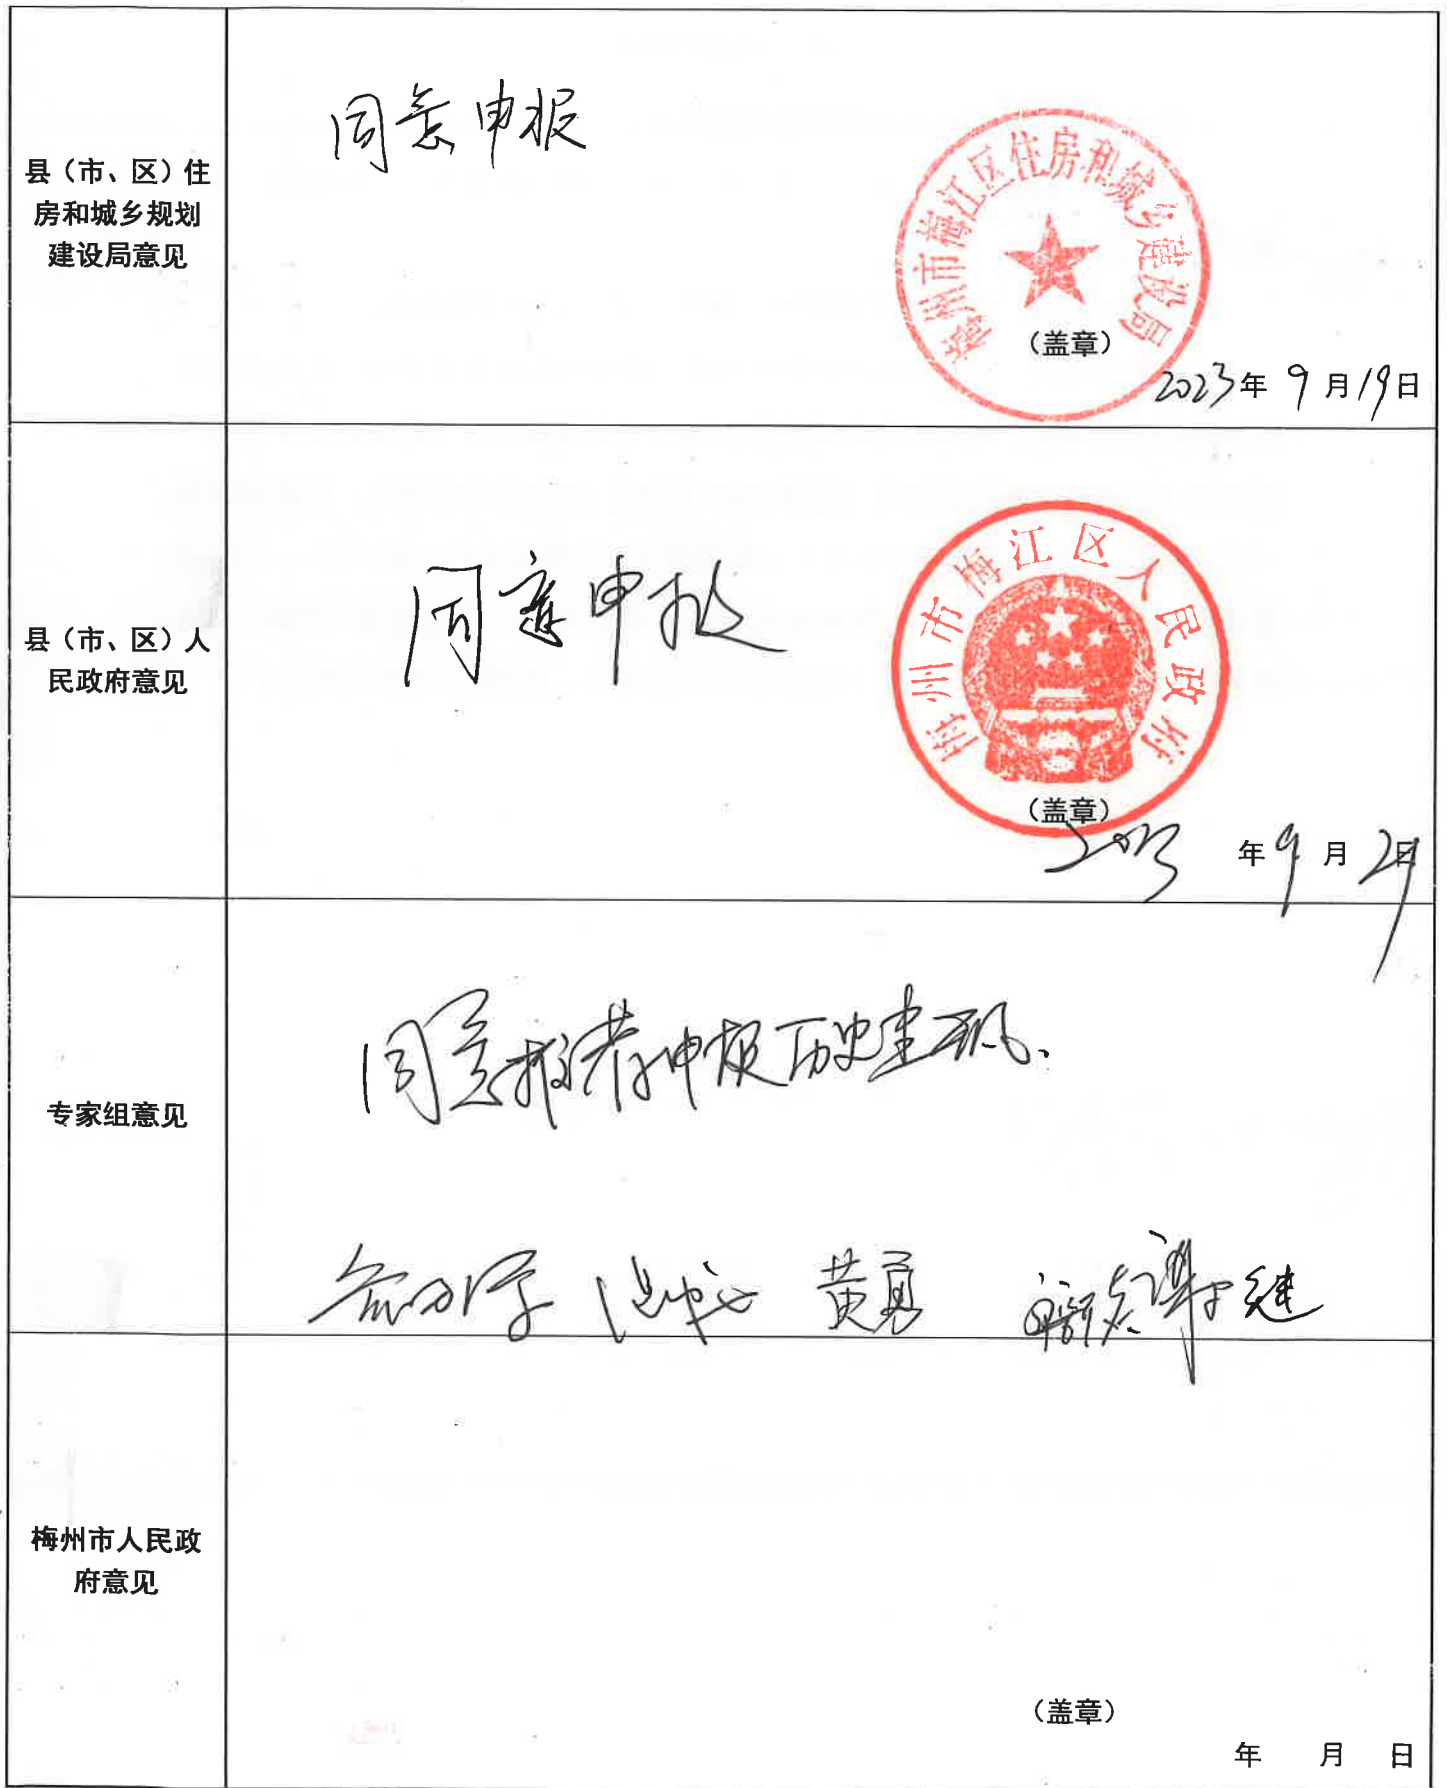 县（市、区）住
房和城乡规划
建设局意见
同意申报
梅州市梅江区住房和城乡建设局
（盖章）
2023年 9 月 19 日
县（市、区）人
民政府意见
同意申报
梅州市梅江区人民政府
（盖章）
2023 年 9 月 2 日
专家组意见
同意推荐申报历史建筑.
黄勇
梅州市人民政
府意见
（盖章）
年 月 日